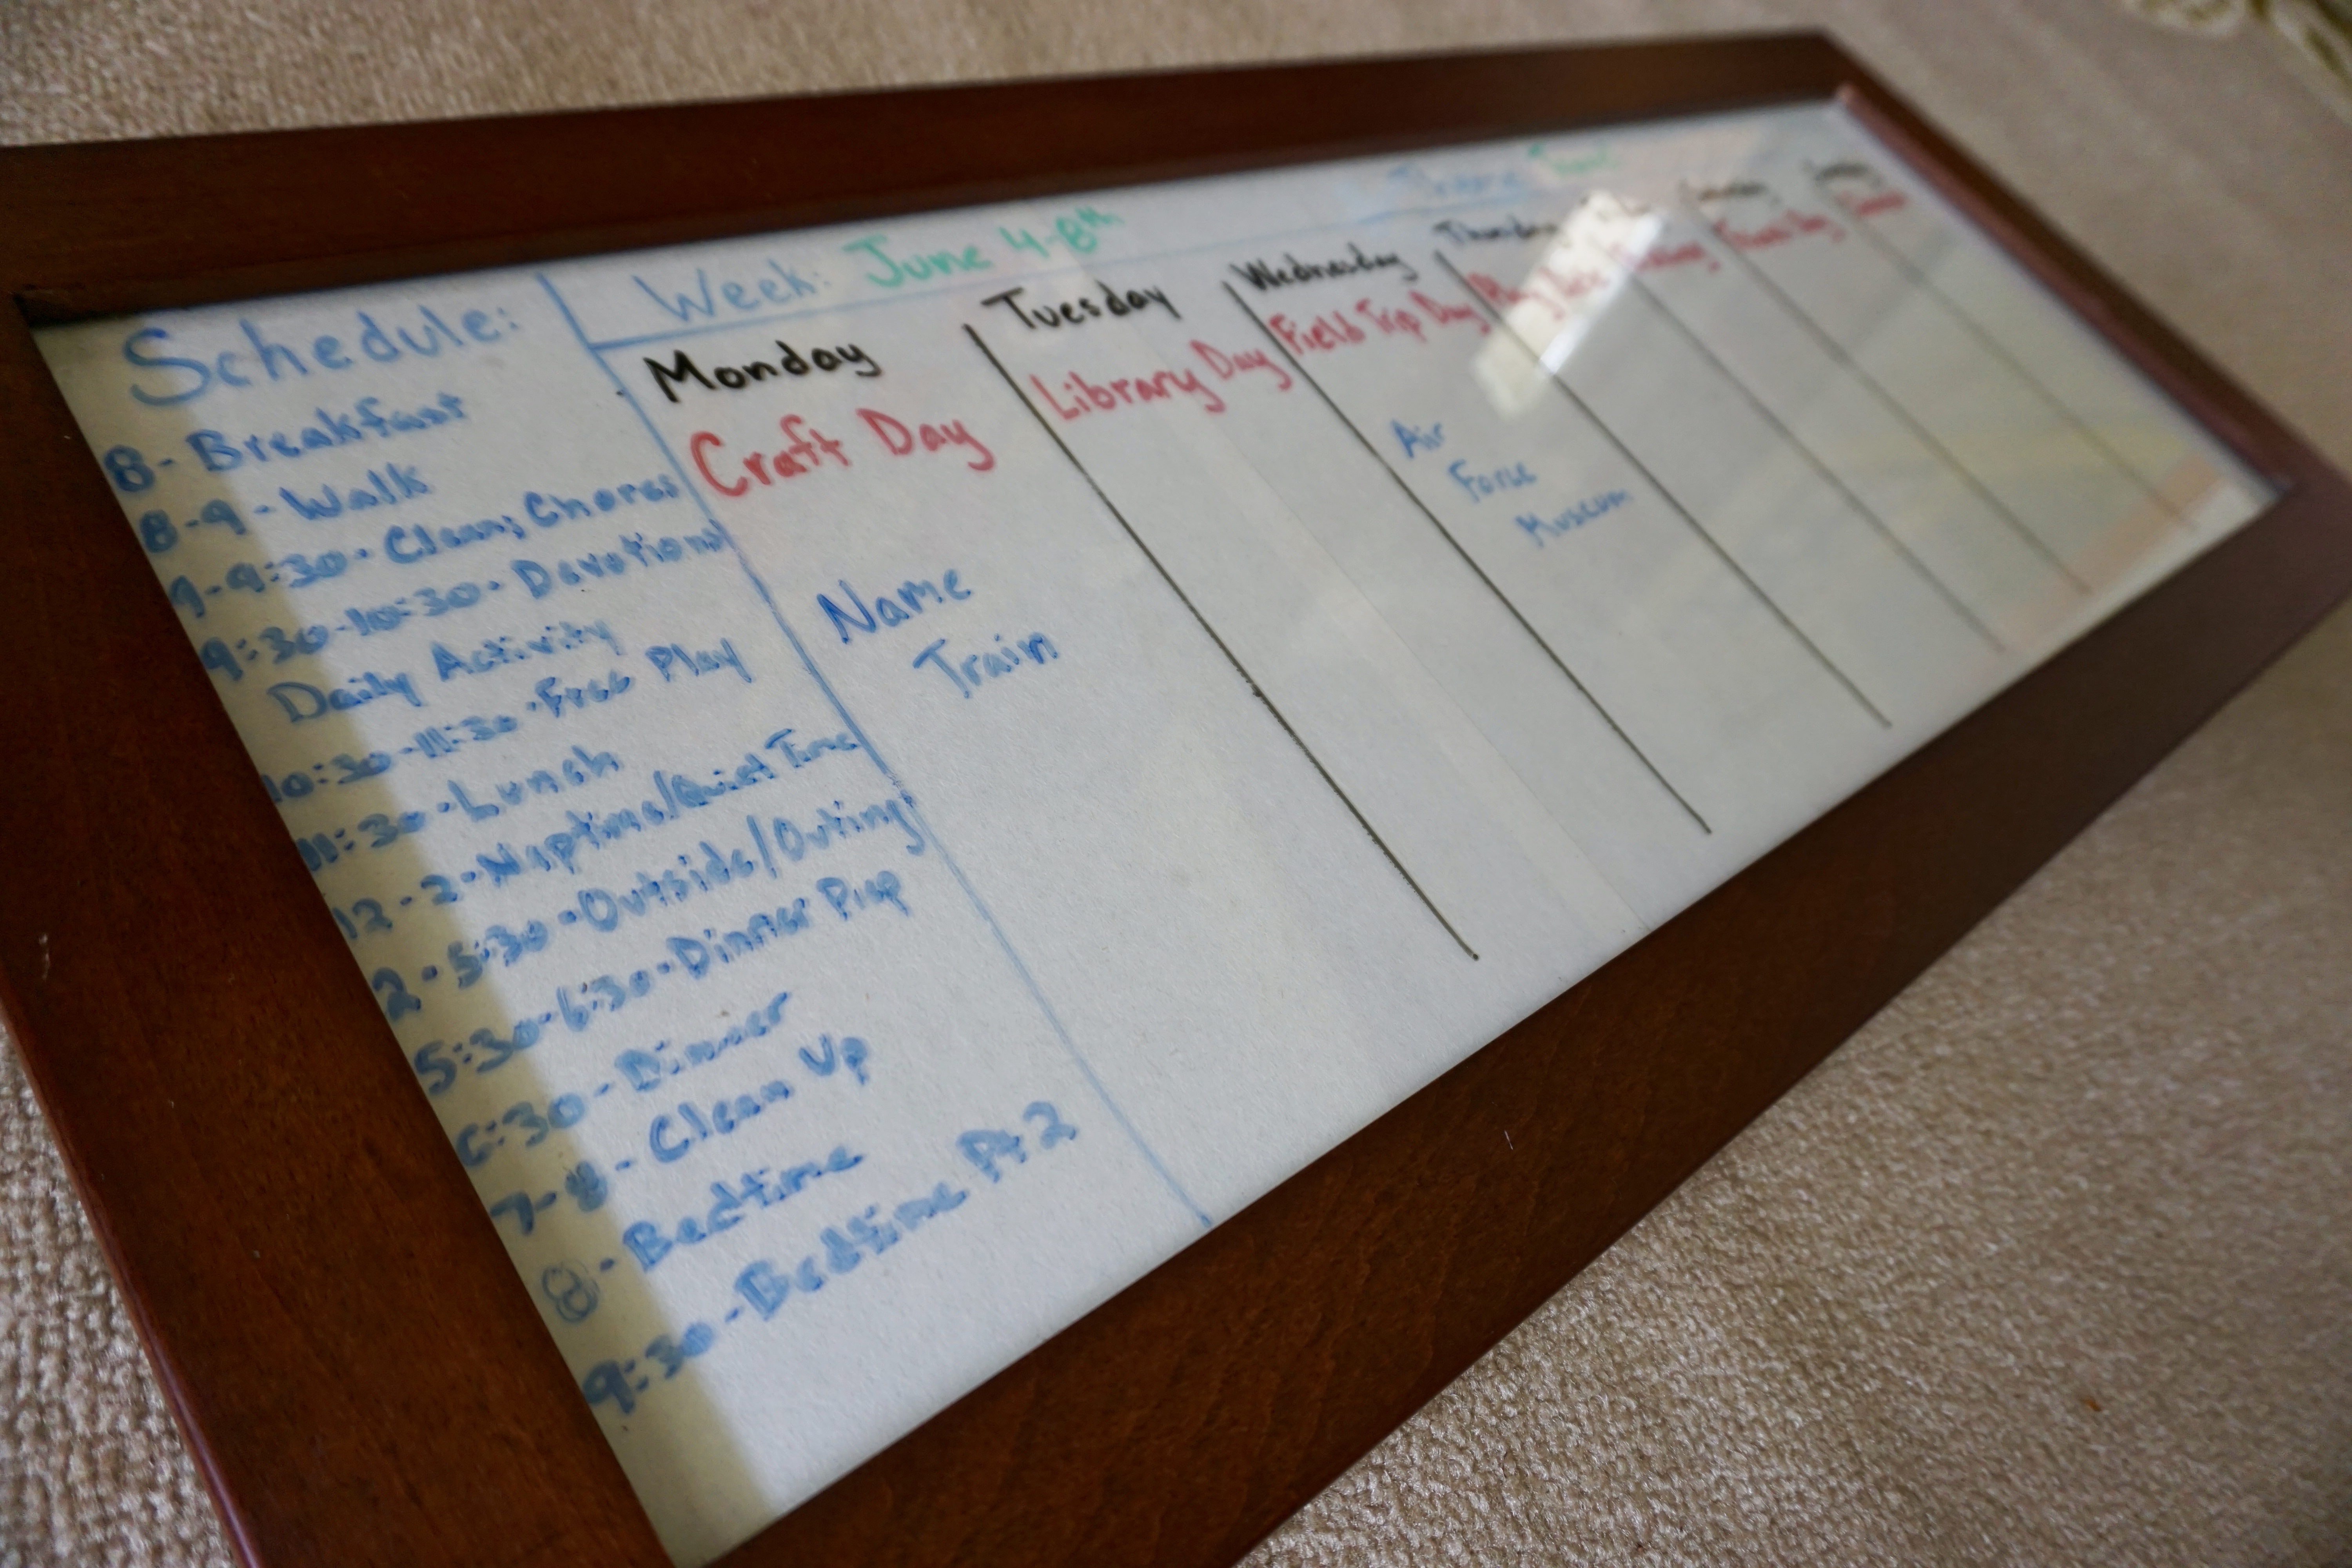 Schedule:
8 - Breakfast
8-9 - Walk
9-9:30 - Clean, Chores
9:30-10:30 - Devotions
Daily Activity
10:30-11:30 - Free Play
11:30 - Lunch
12-2 - Naptime/Quiet Time
2-5:30 - Outside/Outing
5:30-6:30 - Dinner Prep
6:30 - Dinner
7-8 - Clean Up
8 - Bedtime
9:30 - Bedtime Pt 2
Week: June 4-8th
Monday
Craft Day
Name
Train
Tuesday
Library Day
Wednesday
Field Trip Day
Air
Force
Museum
Thursday
Play Date